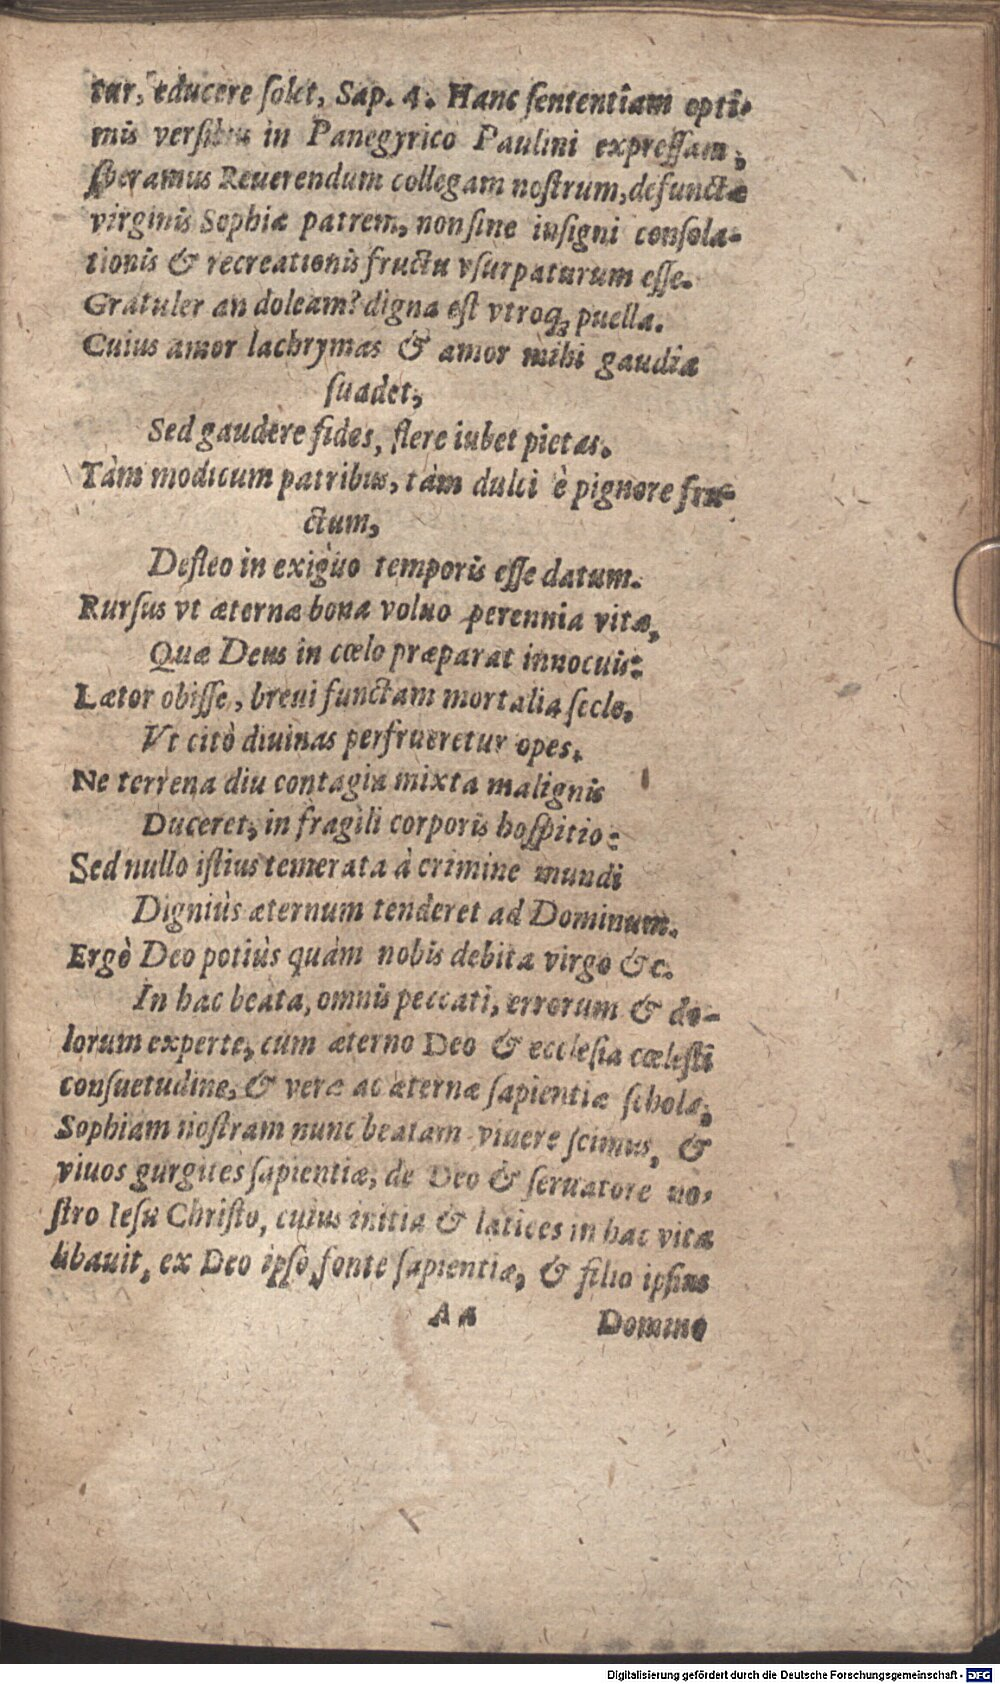 tur, educere solet, Sap. 4. Hanc sententiam opti-
mis versibus in Panegyrico Paulini expressam,
speramus Reuerendum collegam nostrum, defunctæ
virginis Sophiæ patrem, non sine insigni consola-
tionis & recreationis fructu vsurpaturum esse.
Gratuler an doleam? digna est vtroq; puella.
Cuius amor lachrymas & amor mihi gaudia
suadet,
Sed gaudere fides, flere iubet pietas.
Tàm modicum patribus, tàm dulci è pignore fru-
ctum,
Defleo in exiguo temporis esse datum.
Rursus vt æternæ bona voluo perennia vitæ,
Quæ Deus in cœlo præparat innocuis:
Lætor obisse, breui functam mortalia seclo,
Vt citò diuinas perfrueretur opes.
Ne terrena diu contagia mixta malignis
Duceret, in fragili corporis hospitio:
Sed nullo istius temerata à crimine mundi
Digniùs æternum tenderet ad Dominum.
Ergò Deo potiùs quàm nobis debita virgo &c.
In hac beata, omnis peccati, errorum & do-
lorum experte, cum æterno Deo & ecclesia cœlesti
consuetudine, & vera ac æternæ sapientiæ schola,
Sophiam nostram nunc beatam viuere scimus, &
viuos gurgites sapientiæ, de Deo & seruatore no-
stro Iesu Christo, cuius initia & latices in hac vita
libauit, ex Deo ipso fonte sapientiæ, & filio ipsius
Aa Domino
Digitalisierung gefördert durch die Deutsche Forschungsgemeinschaft - DFG